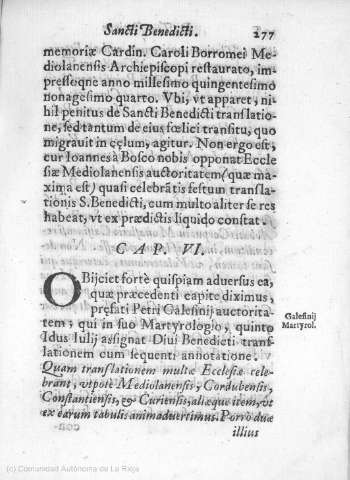 Sancti Benedicti. 277
memoriæ Cardin. Caroli Borromei Me-
diolanensis Archiepiscopi restaurato, im-
presseqne anno millesimo quingentesimo
nonagesimo quarto. Vbi, vt apparet, ni-
hil penitus de Sancti Benedicti translatio-
ne, sed tantum de eius fœlici transitu, quo
migrauit in cęlum, agitur. Non ergo est,
cur Ioannes à Bosco nobis opponat Eccle
siæ Mediolanensis auctoritatem (quæ ma-
xima est) quasi celebrātis festum transla-
tionis S. Benedicti, cum multo aliter se res
habeat, vt ex prædictis liquido constat.
CAP. VI.
OBijciet fortè quispiam adversus ea,
quæ præcedenti capite diximus,
pręfati Petri Galesinij auctorita-
tem, qui in suo Martyrologio, quinto
Idus Iulij assignat Diui Benedicti trans-
lationem cum sequenti annotatione.
Galesinij
Martyrol.
Quam translationem multæ Ecclesiæ cele-
brant, vtpote Mediolanensis, Cordubensis,
Constantiensis, & Curiensis, aliæque item, vt
ex earum tabulis animaduertimus. Porrò duæ
illius
(c) Comunidad Autónoma de La Rioja